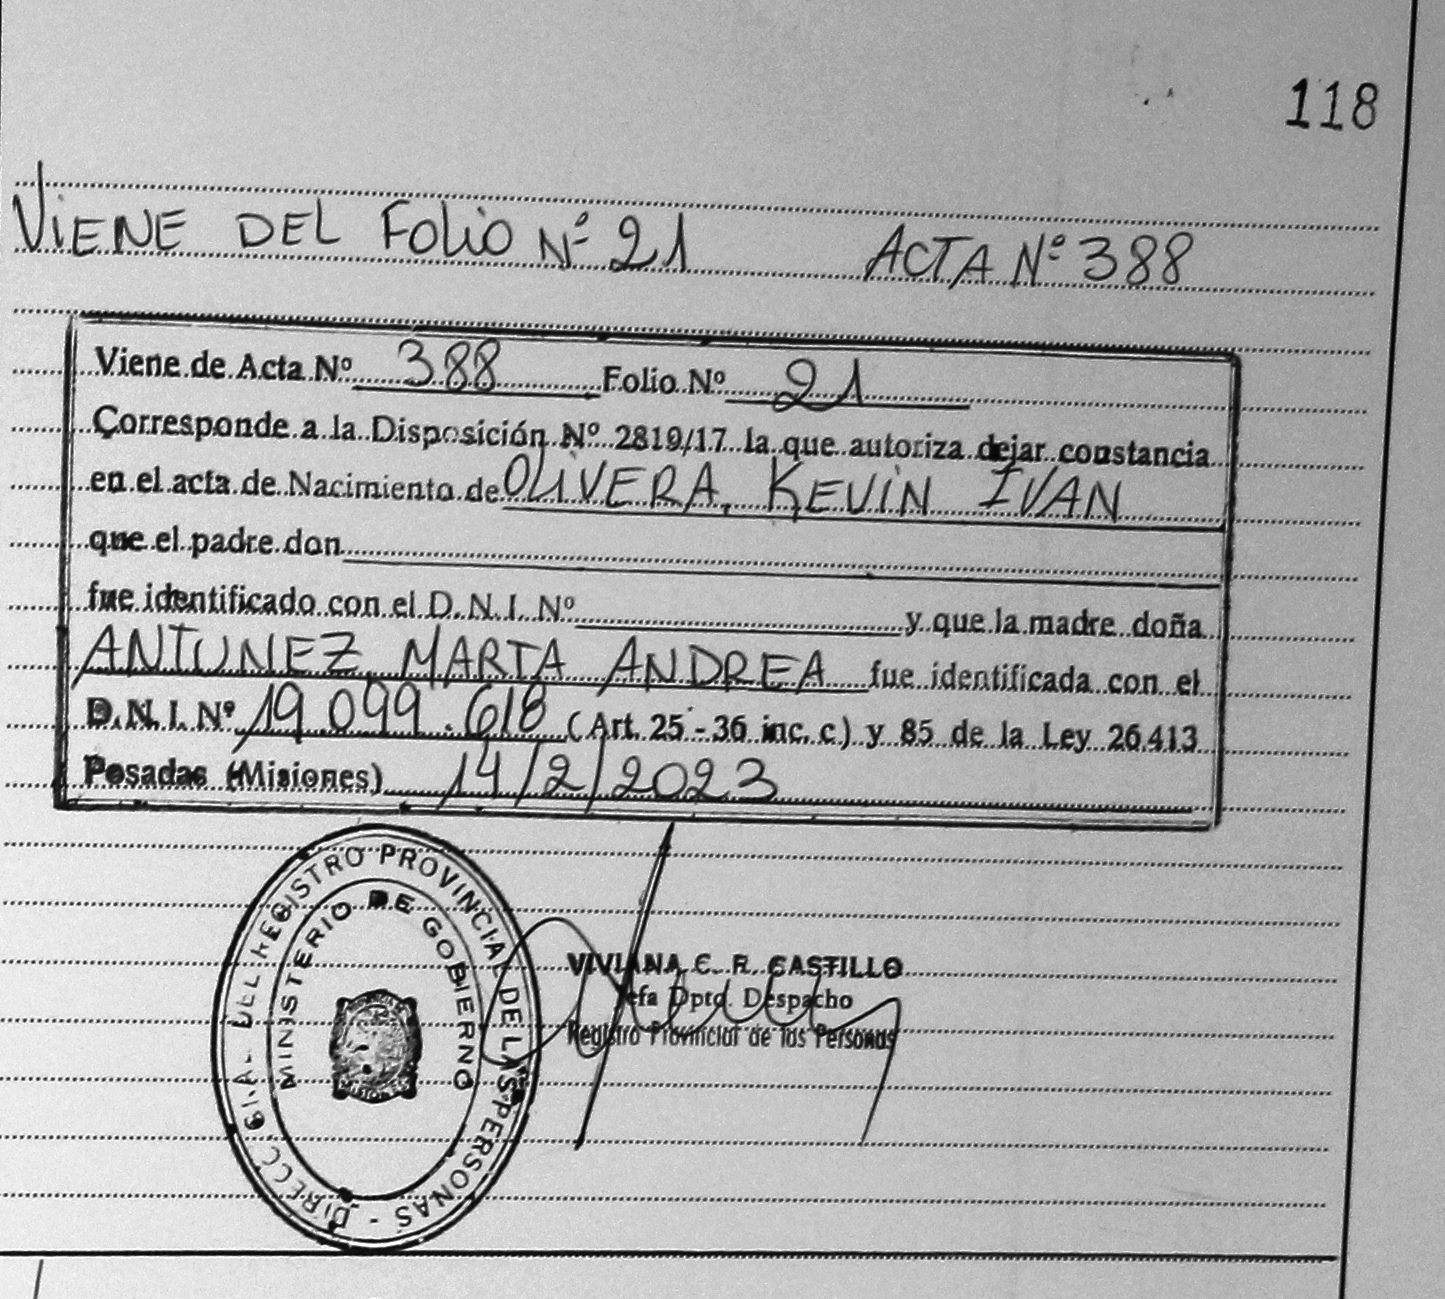 118
VIENE DEL FOLIO Nº 21 ACTA Nº 388
Viene de Acta Nº 388 Folio Nº 21
Corresponde a la Disposición Nº 2819/17 la que autoriza dejar constancia
en el acta de Nacimiento de OLIVERA, KEVIN IVAN
que el padre don
fue identificado con el D.N.I. Nº y que la madre doña
ANTUNEZ MARTA ANDREA fue identificada con el
D.N.I. Nº 19.099.618 (Art. 25 - 36 inc. c) y 85 de la Ley 26.413
Posadas (Misiones) 14/2/2023
DIRECC. GRAL. DEL REGISTRO PROVINCIAL DE LAS PERSONAS -
MINISTERIO DE GOBIERNO
VIVIANA C. R. CASTILLO
Jefa Dpto. Despacho
Registro Provincial de las Personas